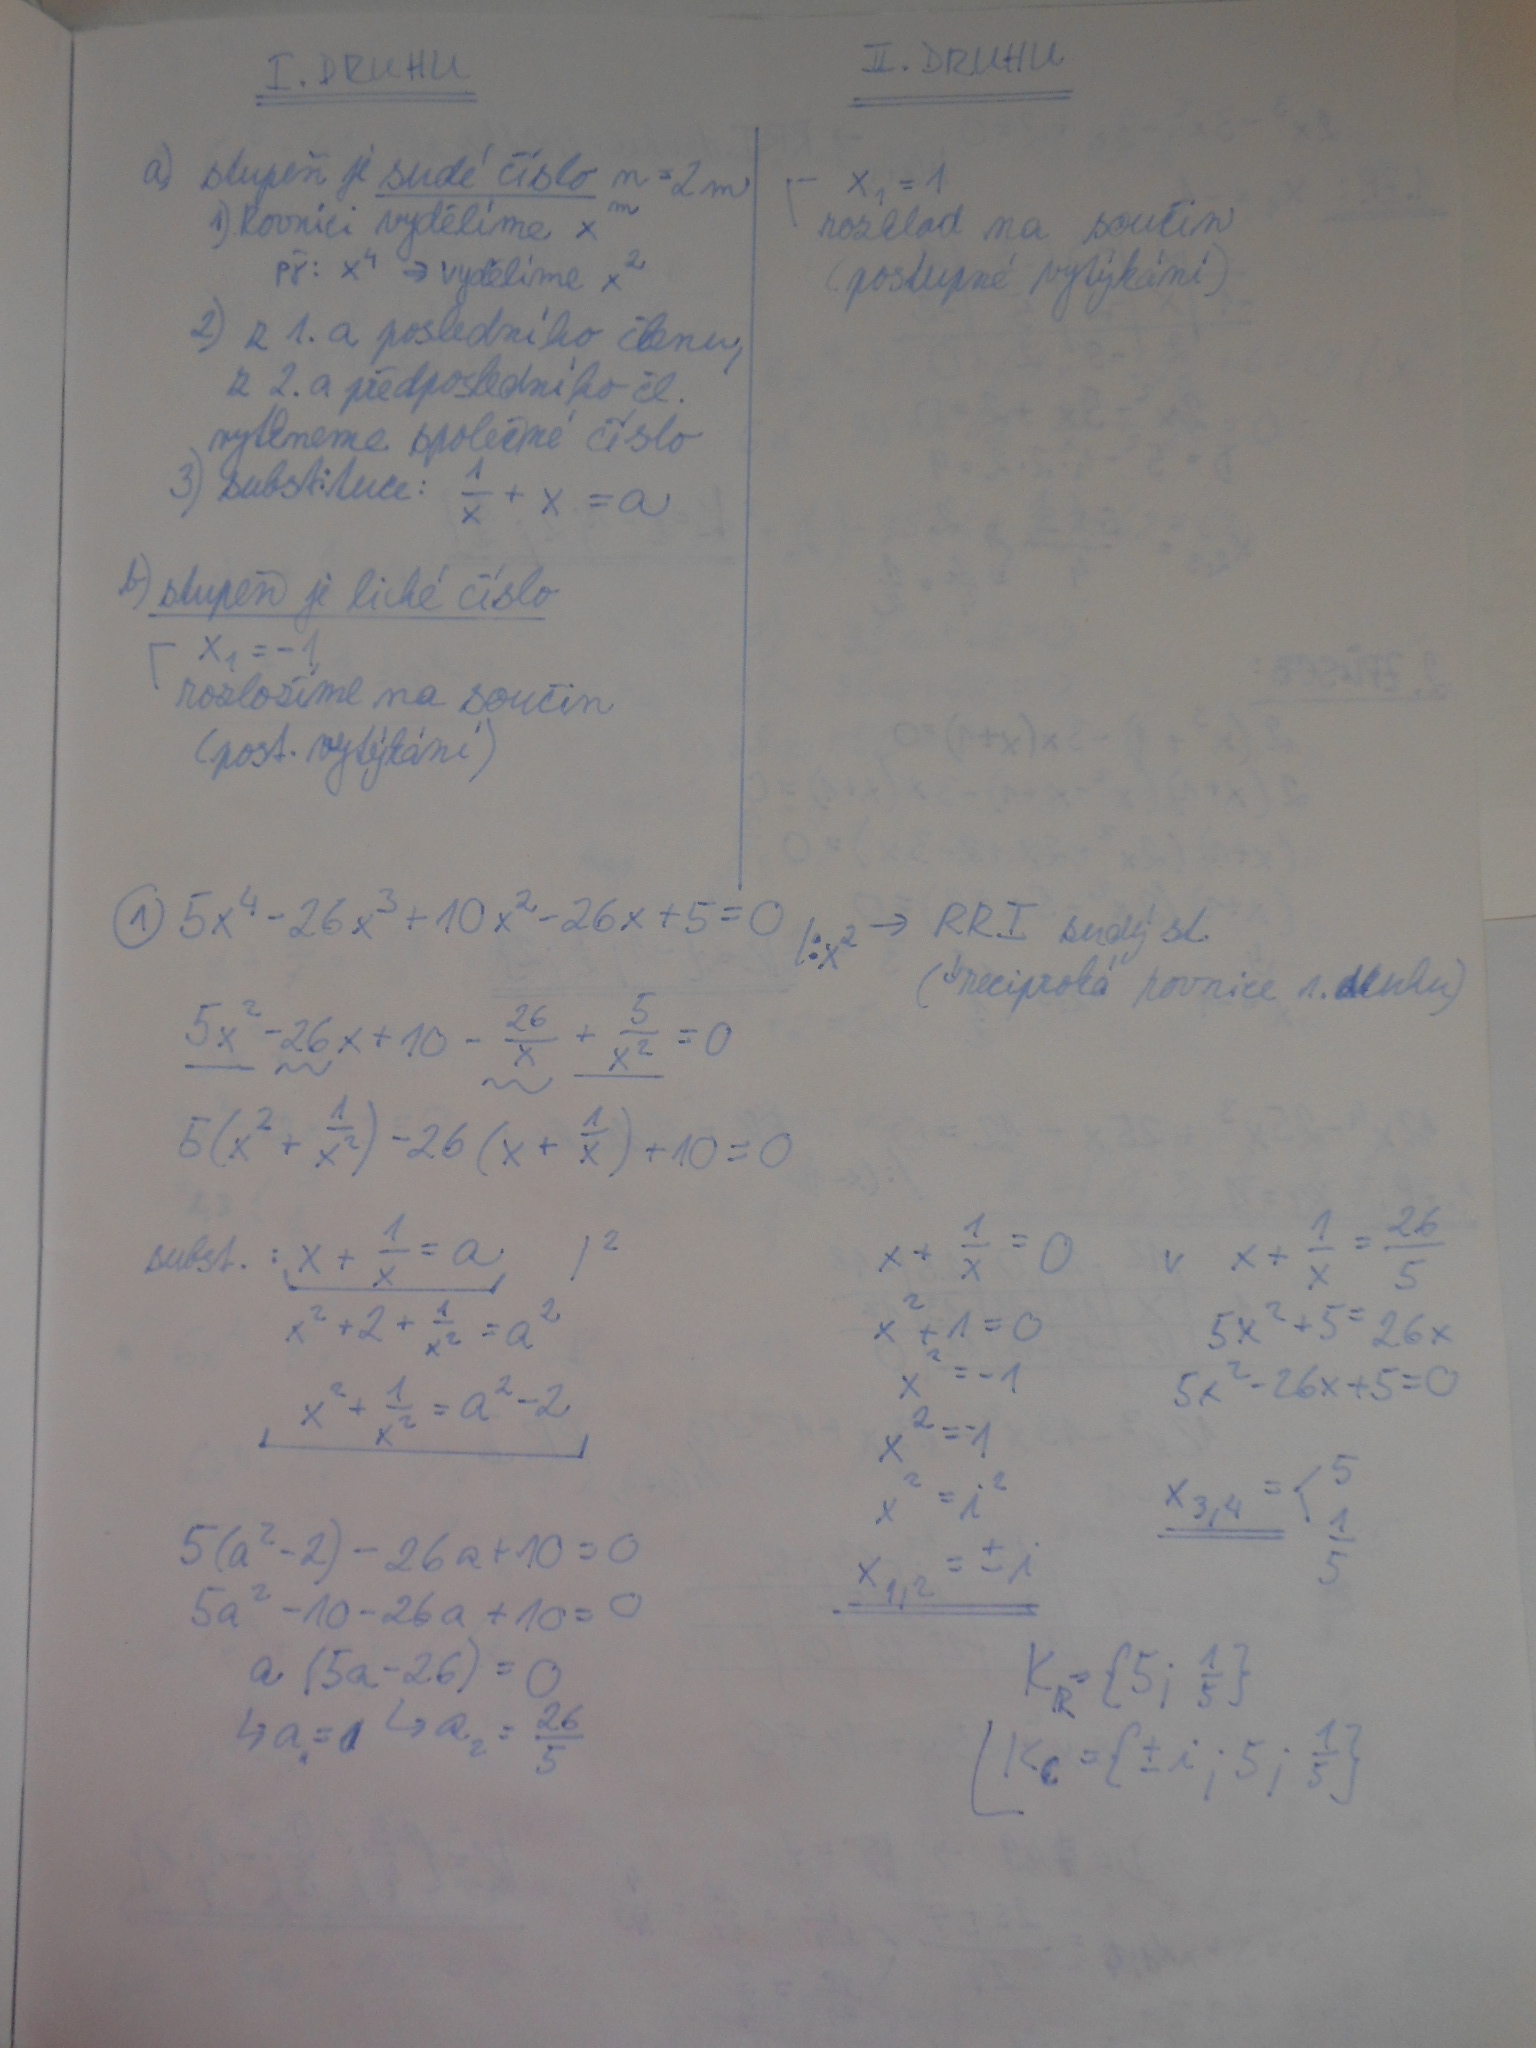 I. DRUHU
a) stupeň je sudé číslo n = 2m
1) Rovnici vydělíme x^m
př: x^4 → vydělíme x^2
2) z 1. a posledního členu,
z 2. a předposledního čl.
vytkneme společné číslo
3) substituce: 1/x + x = a
b) stupeň je liché číslo
x₁ = -1
rozložíme na součin
(post. vytýkání)
II. DRUHU
x₁ = 1
rozklad na součin
(postupné vytýkání)
① 5x^4 - 26x^3 + 10x^2 - 26x + 5 = 0 /:x^2 → RRI sudý st.
(↳ reciproká rovnice 1. druhu)
5x^2 - 26x + 10 - 26/x + 5/x^2 = 0
5(x^2 + 1/x^2) - 26(x + 1/x) + 10 = 0
subst.: x + 1/x = a /^2
x^2 + 2 + 1/x^2 = a^2
x^2 + 1/x^2 = a^2 - 2
5(a^2 - 2) - 26a + 10 = 0
5a^2 - 10 - 26a + 10 = 0
a (5a - 26) = 0
↳ a₁ = 0 ↳ a₂ = 26/5
x + 1/x = 0 v x + 1/x = 26/5
x^2 + 1 = 0
x^2 = -1
x^2 = -1
x^2 = i^2
x₁,₂ = ± i
5x^2 + 5 = 26x
5x^2 - 26x + 5 = 0
x₃,₄ = < 5
1/5
K_R = {5; 1/5}
K_C = {± i; 5; 1/5}